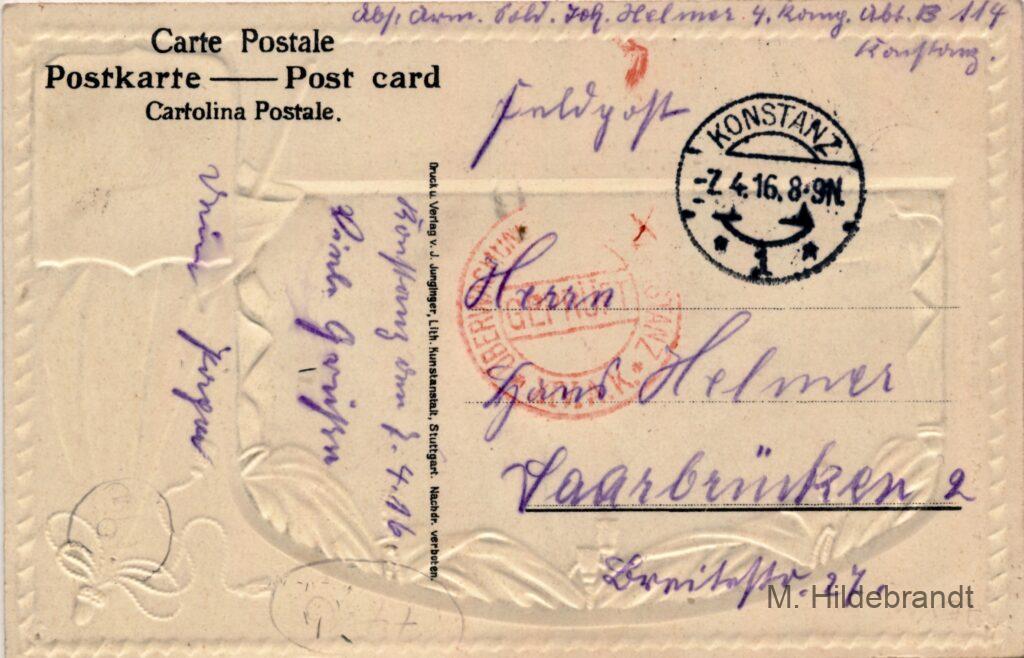 Abs. Arm. Sold. Joh. Helmer. 4. Komp. Abt. B 114
Konstanz.
Carte Postale
Postkarte — Post card
Cartolina Postale.
Feldpost
KONSTANZ
-7. 4. 16. 8-9N.
* 1 *
Konstanz den 7.4.16.
Viele Grüßen
Druck u. Verlag v. J. Junginger, Lith. Kunstanstalt, Stuttgart. Nachdr. verboten.
GEPRÜFT
Herrn
Hans Helmer
Saarbrücken 2
Breitestr. 27.
M. Hildebrandt